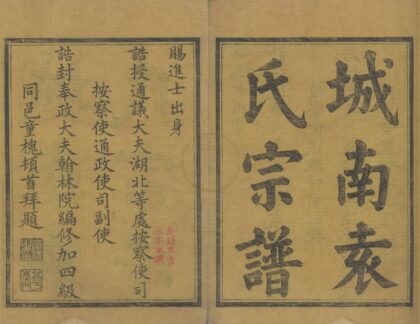 城南袁
氏宗譜
賜進士出身
誥授通議大夫湖北等處按察使司
按察使通政使司副使
誥封奉政大夫翰林院編修加四級
同邑童槐頓首拜題